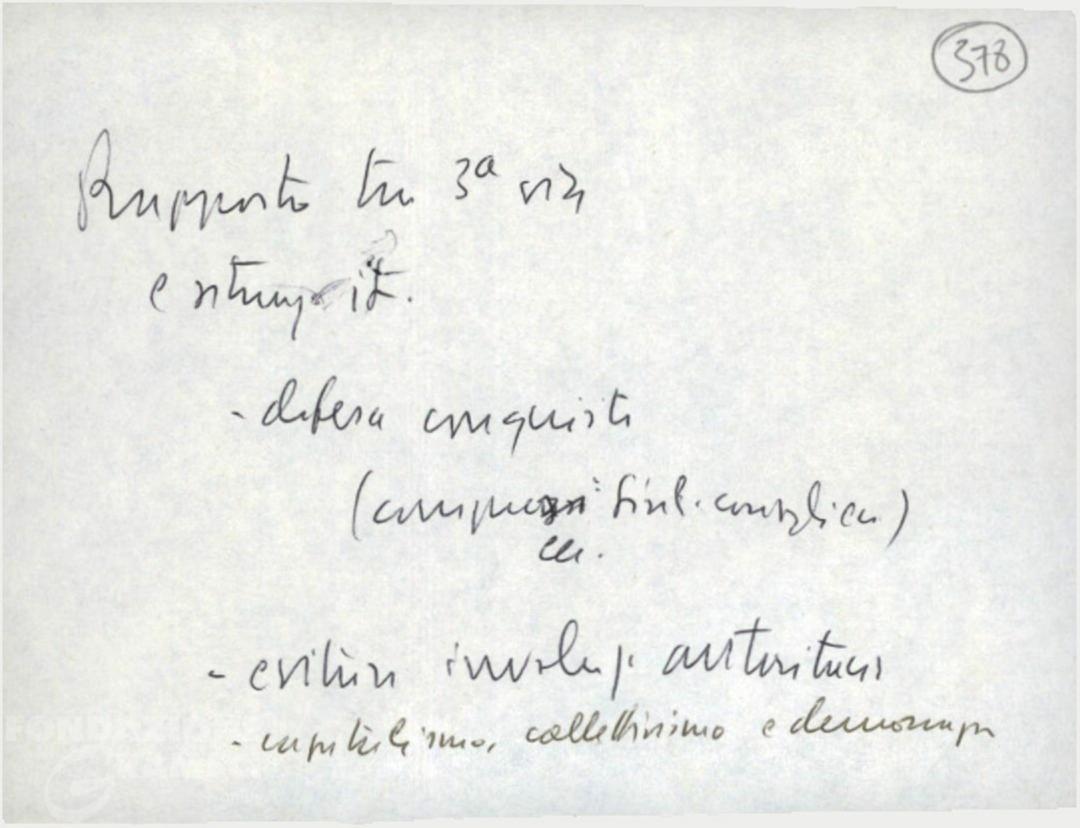 378
Rapporto tra 3ª via
e situaz. it.
- difesa conquiste
(compresi sind.
ecc.
- evitare involuz. autoritarie
- capitalismo, collettivismo e democrazia
FONDAZIONE